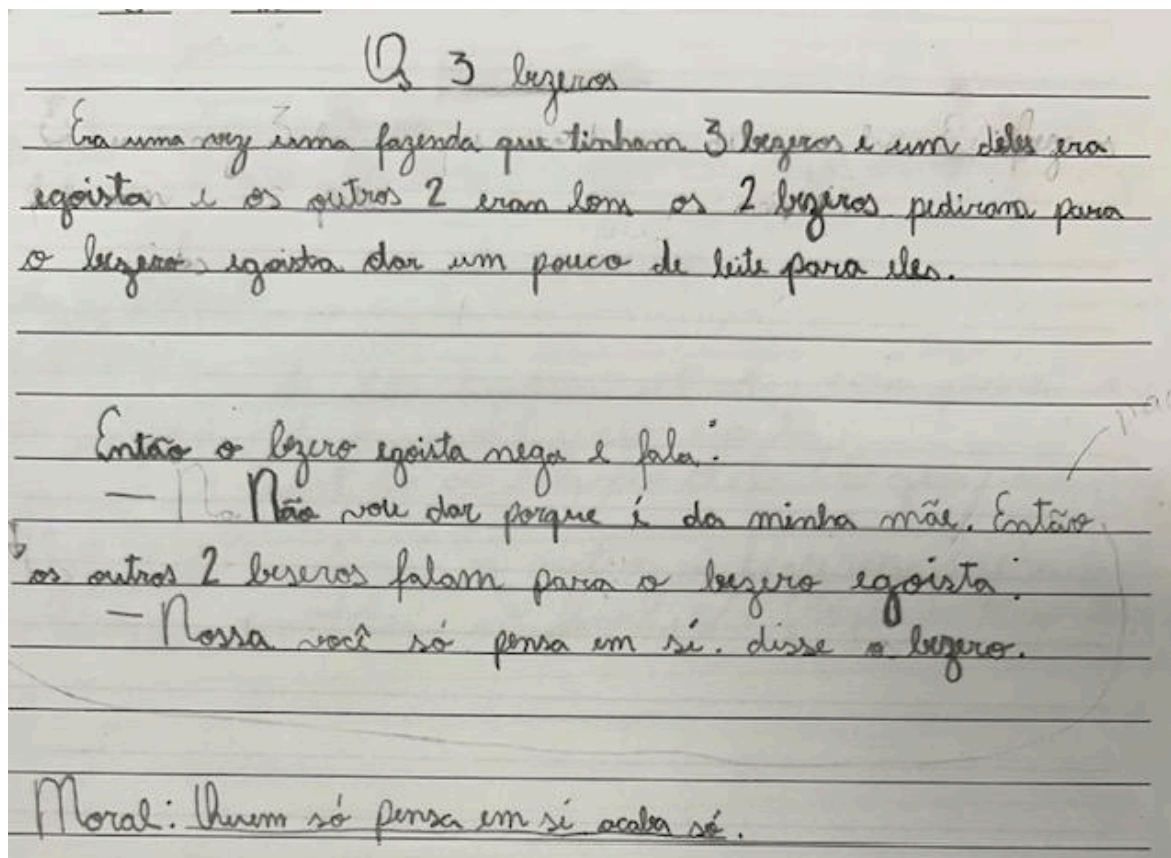 Os 3 bezeros
Era uma vez uma fazenda que tinham 3 bezeros e um deles era
egoista e os outros 2 eram bons os 2 bezeros pediram para
o bezero egoista dar um pouco de leite para eles.
Então o bezero egoista nega e fala:
— Não vou dar porque é da minha mãe. Então
os outros 2 beseros falam para o bezero egoista:
— Nossa você só pensa em sí. disse o bezero.
Moral: Quem só pensa em sí acaba só.